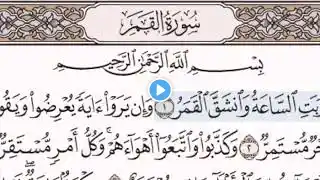 سُورَةُ القَمَر
بِسْمِ اللَّهِ الرَّحْمَٰنِ الرَّحِيمِ
رَبَتِ السَّاعَةُ وَانشَقَّ الْقَمَرُ ١ وَإِن يَرَوْا ءَايَةً يُعْرِضُوا وَيَقُو
حْرٌ مُّسْتَمِرٌّ ٢ وَكَذَّبُوا وَاتَّبَعُوا أَهْوَاءَهُمْ ۚ وَكُلُّ أَمْرٍ مُّسْتَقِرٌّ